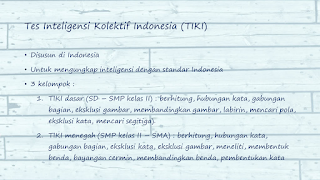 Tes Inteligensi Kolektif Indonesia (TIKI)
• Disusun di Indonesia
• Untuk mengungkap inteligensi dengan standar Indonesia
• 3 kelompok :
1. TIKI dasar (SD – SMP kelas II) : berhitung, hubungan kata, gabungan
bagian, eksklusi gambar, membandingkan gambar, labirin, mencari pola,
eksklusi kata, mencari segitiga
2. TIKI menegah (SMP kelas II – SMA) : berhitung, hubungan kata,
gabungan bagian, eksklusi kata, eksklusi gambar, meneliti, membentuk
benda, bayangan cermin, membandingkan benda, pembentukan kata